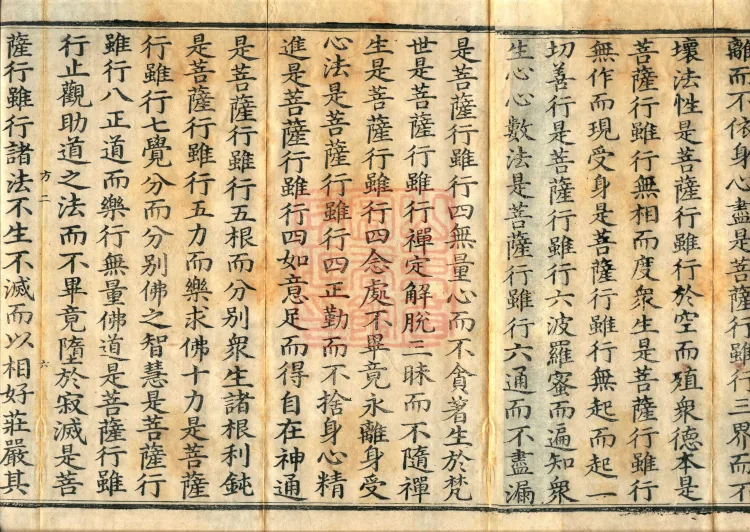 離而不依身心盡是菩薩行雖行三界而不
壞法性是菩薩行雖行於空而殖衆德本是
菩薩行雖行無相而度衆生是菩薩行雖行
無作而現受身是菩薩行雖行無起而起一
切善行是菩薩行雖行六波羅蜜而遍知衆
生心心數法是菩薩行雖行六通而不盡漏
是菩薩行雖行四無量心而不貪著生於梵
世是菩薩行雖行禪定解脫三昧而不隨禪
生是菩薩行雖行四念處不畢竟永離身受
心法是菩薩行雖行四正勤而不捨身心精
進是菩薩行雖行四如意足而得自在神通
是菩薩行雖行五根而分別衆生諸根利鈍
是菩薩行雖行五力而樂求佛十力是菩薩
行雖行七覺分而分別佛之智慧是菩薩行
雖行八正道而樂行無量佛道是菩薩行雖
行止觀助道之法而不畢竟墮於寂滅是菩
方二
六
薩行雖行諸法不生不滅而以相好莊嚴其